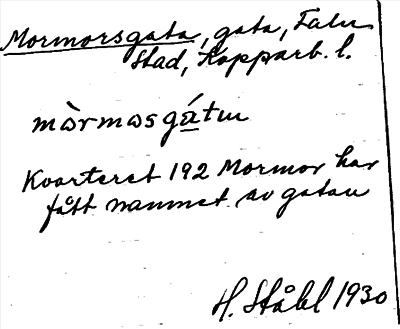 Mormorsgata, gata, Falu
stad, Kopparb. l.
mòrmosgátu
Kvarteret 192 Mormor har
fått namnet av gatan
H. Ståhl 1930